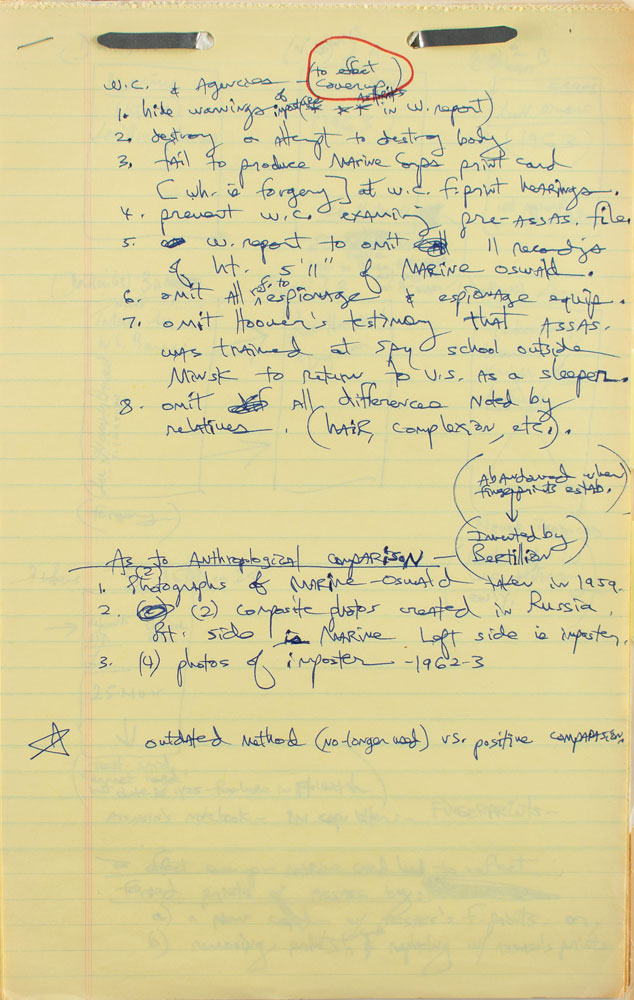 (to effect
W.C. & Agencies - Coverup)
of Asterisks
1. hide warnings imposter (* ** in W. report)
2. destroy or attempt to destroy body
3. fail to produce MARine Corps print card
[wh. is forgery] at W.C. F.print HeARings.
4. prevent W.C. examining pre-ASSAS. file.
5. W. report to omit 11 recordgs
of ht. 5'11" of MARINE OSWALD.
6. omit All ref. to espionage & espionage equip.
7. omit Hoover's testimony that ASSAS.
was trained at spy school outside
Minsk to return to U.S. as a sleeper.
8. omit All differences Noted by
relatives. (hAiR, complexion, etc.).
(Abandoned when
fingerprints estab.)
(Invented by
Bertillian)
As to Anthropological COMPARISON -
(2)
1. Photographs of MARINE-OSWALD taken in 1959.
2. (2) composite photos created in Russia.
Rt. side is MARINE Left side is imposter.
3. (4) photos of imposter - 1962-3
outdated methode (no-longer used) vs. positive COMPARISON.
FINGERPRINTS-
25 Nov